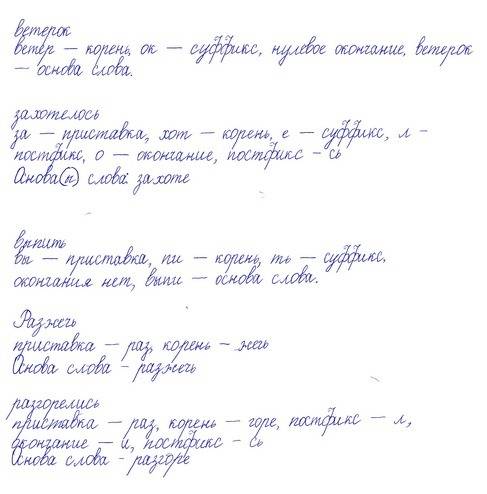 ветерок
ветер — корень, ок — суффикс, нулевое окончание, ветерок
— основа слова.
захотелось
за — приставка, хот — корень, е — суффикс, л -
постфикс, о — окончание, постфикс - сь
Анова(п) слова: захоте
выпить
вы — приставка, пи — корень, ть — суффикс,
окончания нет, выпи — основа слова.
Разжечь
приставка — раз, корень — жечь
Основа слова - разжечь
разгорелись
приставка — раз, корень — горе, постфикс — л,
окончание — и, постфикс - сь
Основа слова - разгоре